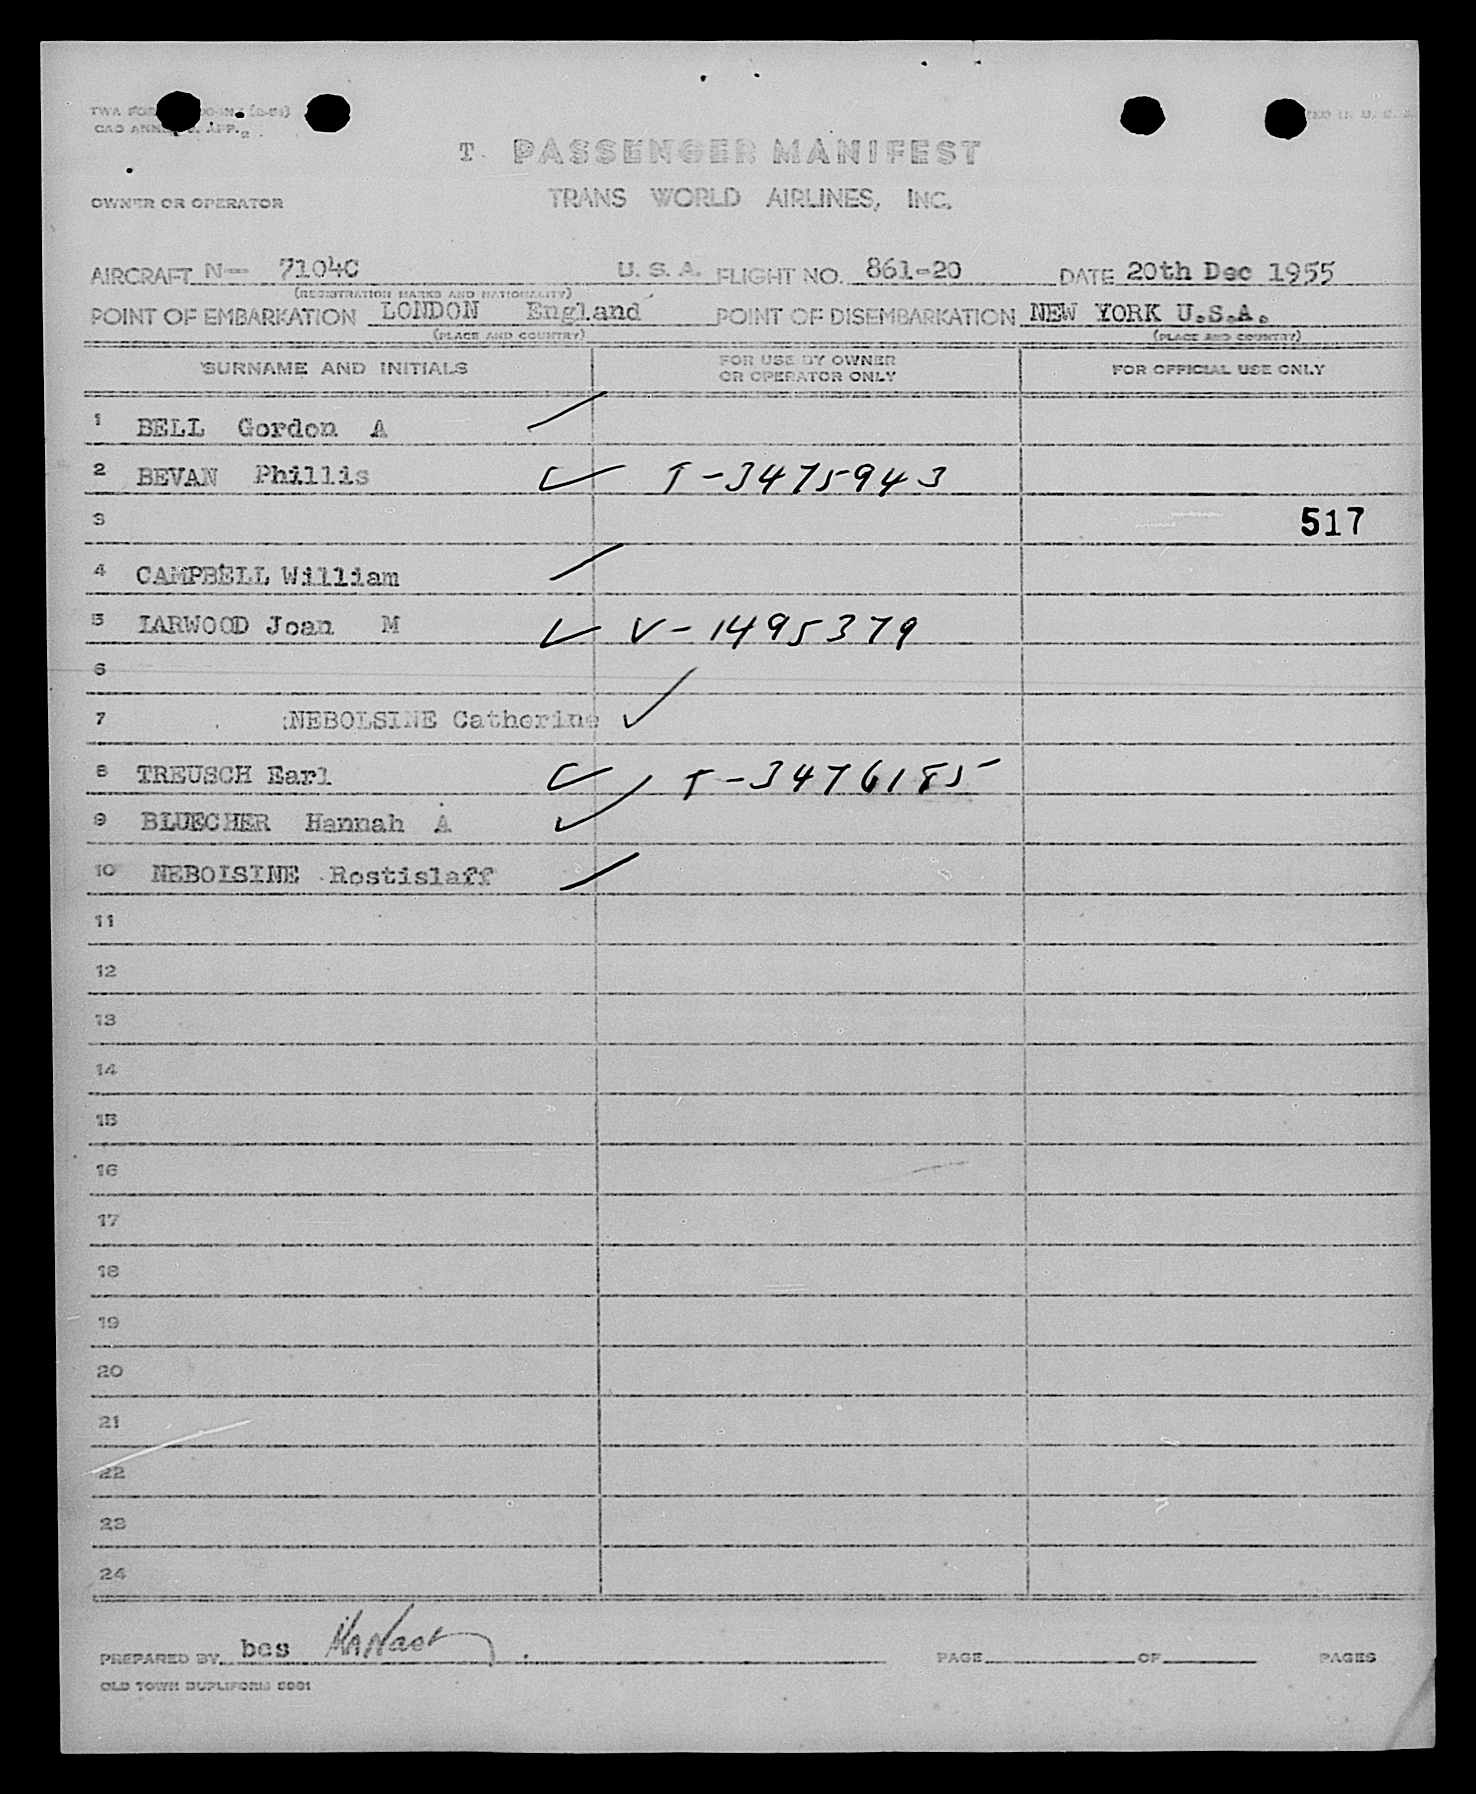 CAO ANNEX APP.
T. PASSENGER MANIFEST
OWNER OR OPERATOR TRANS WORLD AIRLINES, INC.
AIRCRAFT N- 7104C U. S. A. FLIGHT NO. 861-20 DATE 20th Dec 1955
(REGISTRATION MARKS AND NATIONALITY)
POINT OF EMBARKATION LONDON England POINT OF DISEMBARKATION NEW YORK U.S.A.
(PLACE AND COUNTRY) (PLACE AND COUNTRY)
SURNAME AND INITIALS FOR USE BY OWNER OR OPERATOR ONLY FOR OFFICIAL USE ONLY
1 BELL Gordon A
2 BEVAN Phillis T-3475943
3 517
4 CAMPBELL William
5 LARWOOD Joan M V-1495379
6
7 NEBOLSINE Catherine
8 TREUSCH Earl T-3476185
9 BLUECHER Hannah A
10 NEBOLSINE Rostislaff
11
12
13
14
15
16
17
18
19
20
21
22
23
24
PREPARED BY bes
PAGE OF PAGES
OLD TOWN DUPLIFORM 5001